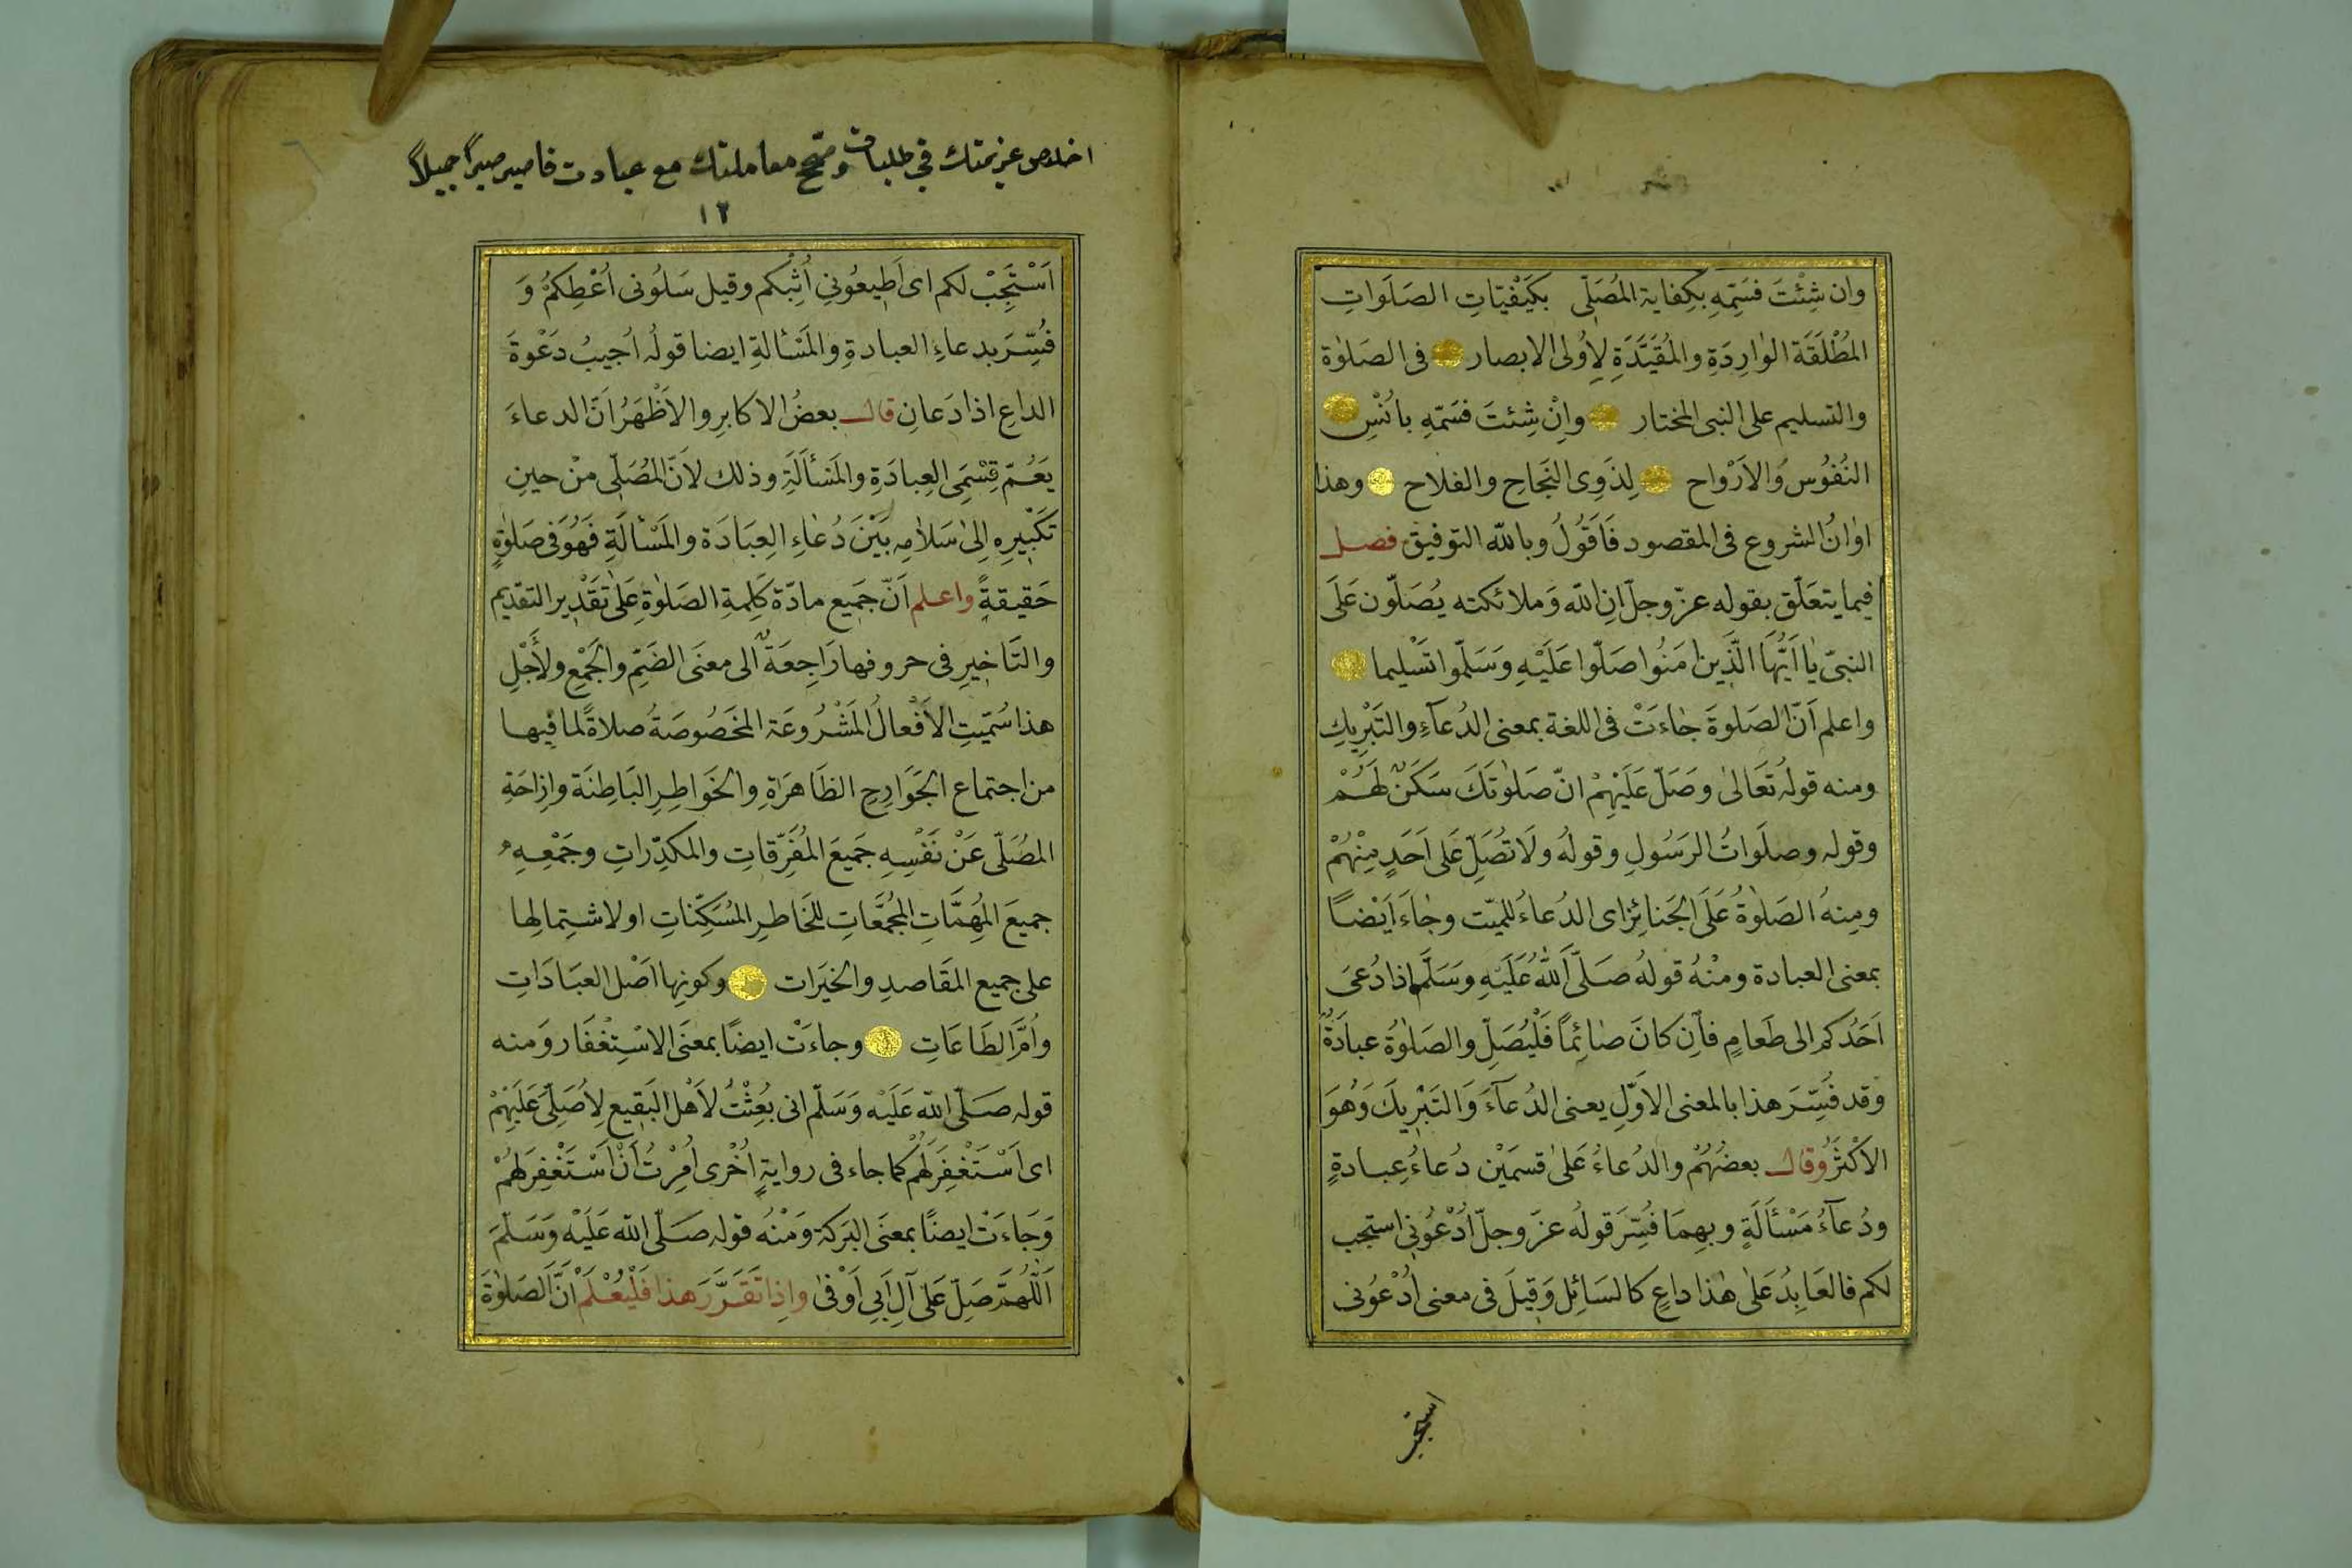 وان شِئْتَ فسَمِّهِ بكِفاية المُصَلّى بكَيْفيّاتِ الصَلَواتِ
المُطْلَقَة الوٰارِدَةِ والمُقيَّدَةِ لِاُولى الابصار فى الصَلوٰة
والتسليم على النبى المختار وانْ شِئتَ فسَمّهِ باُنْسِ
النُفُوسِ وَالاَرْواح لِذَوِى النَجَاحِ والفلاح وهذا
اوٰانُ الشروع فى المقصود فَاَقُولُ وبالله التوفيق فصل
فيما يتعَلّق بقوله عزّ وجلّ انّ الله وَملائكته يُصَلّون عَلَى
النبىّ يٰا اَيُّهَا الَّذِينَ اٰمَنُوا صَلّوا عَلَيْهِ وَسَلّموا تَسْليما
واعلم اَنّ الصَلوةَ جٰاءَتْ فى اللغة بمعنى الدُعآءِ والتَبْرِيكِ
ومنه قولُه تَعَالىٰ وَصَلّ عَلَيْهِمْ انّ صَلوٰتَكَ سَكَنٌ لَهُمْ
وقوله وصلَوَاتُ الرَسُولِ وقولُه ولَا تُصَلِّ عَلى اَحَدٍ مِنْهُمْ
ومِنهُ الصَلوٰةُ عَلَى الجَنائِزِ اى الدُعاءُ للميّت وجٰاءَ اَيْضًا
بمعنى العبادة ومنْهُ قولهُ صَلَّى اللهُ عَلَيْهِ وسَلَّم اذا دُعىَ
اَحَدُكم الى طَعامٍ فاِن كانَ صٰائِمًا فَلْيُصَلِّ والصَلوٰةُ عبادَةٌ
وقد فُسِّرَ هذا بالمعنى الاوّلِ يعنى الدُعآءَ وَالتَبْرِيكَ وَهُوَ
الاَكْثَرُ وقال بعضُهُمْ والدُعاءُ عَلىٰ قسمَيْن دُعاءُ عِبادةٍ
ودُعآءُ مَسْأَلَةٍ وبهِمَا فُسِّرَ قولُه عزّ وجلّ اُدْعُونِى استجب
لكم فالعَابِدُ عَلٰى هٰذا داعٍ كالسَائِل وَقِيلَ فى معنى اُدْعُونى
استجب
اخلاص عزيمتك فى طلبات وصحّح معاملتك مع عبادت فاصبر صبرًا جميلاً
١٢
اَسْتَجِبْ لكم اى اَطِيعُونِى اُثِبْكم وقيل سَلُونى اُعْطِكمْ وَ
فُسِّرَ بدعاءِ العبادةِ والمَسْألةِ ايضا قولُه اُجيبُ دَعْوةَ
الداعِ اذا دَعانِ قال بعضُ الاكابرِ والاَظْهَرُ اَنّ الدعاءَ
يَعُمّ قِسْمَىِ العِبادَةِ والمَسْأَلَةِ وذلك لاَنّ المُصَلّى مِنْ حينِ
تَكْبِيرِهِ اِلىٰ سَلاٰمِه بَيْنَ دُعٰاءِ العِبَادَة والمَسْألَةِ فَهُوَ فى صَلوٰةٍ
حَقيقةٍ واعلم اَنّ جَميع مادّة كَلِمةِ الصَلوٰةِ عَلىٰ تَقْدِير التقديم
والتَاخيرِ فى حروفها رَاجِعَةٌ الى معنَى الضَمِّ والجَمْعِ ولأَجْلِ
هذا سُمّيَتِ الاَفْعالُ المَشْرُوعَة المخَصُوصَةُ صلاةً لما فيها
من اجتماع الجَوَارِحِ الظَاهَرَةِ والخَواطِرِ البَاطِنَة وازِاحَةِ
المُصَلّى عَنْ نَفْسِهِ جَميَعَ المُفَرِّقاتِ والمكدِّراتِ وجَمْعِهِ
جميعَ المُهِمَّاتِ المُجَمَّعَاتِ للخَاطرِ المُسَكِّناتِ او لاشتِمالِها
على جميع المَقَاصدِ والخيَرَات وكونِها اَصْل العبَادَاتِ
واُمَّ الطَاعَاتِ وجاءَتْ ايضًا بمعنَى الاسْتِغْفَار وَمنه
قوله صَلّى الله عَلَيْه وَسَلّم انى بُعِثْتُ لاَهْل البَقيعِ لِاُصَلّىَ عَلَيْهِمْ
اى اَسْتَغْفِرَ لَهُمْ كما جاء فى روايةٍ اُخْرى اُمِرْتُ اَنْ اَسْتَغْفِرَ لهُمْ
وَجَاءَتْ ايضًا بمعنَى البَركة وَمْنُه قوله صَلّى الله عَلَيْه وَسَلّمَ
اَللّٰهُمَّ صَلِّ عَلىٰ آلِ اَبِى اَوْفىٰ واِذا تَقَرَّرَ هذا فَلْيُعْلَمْ اَنَّ الصَلوٰةَ